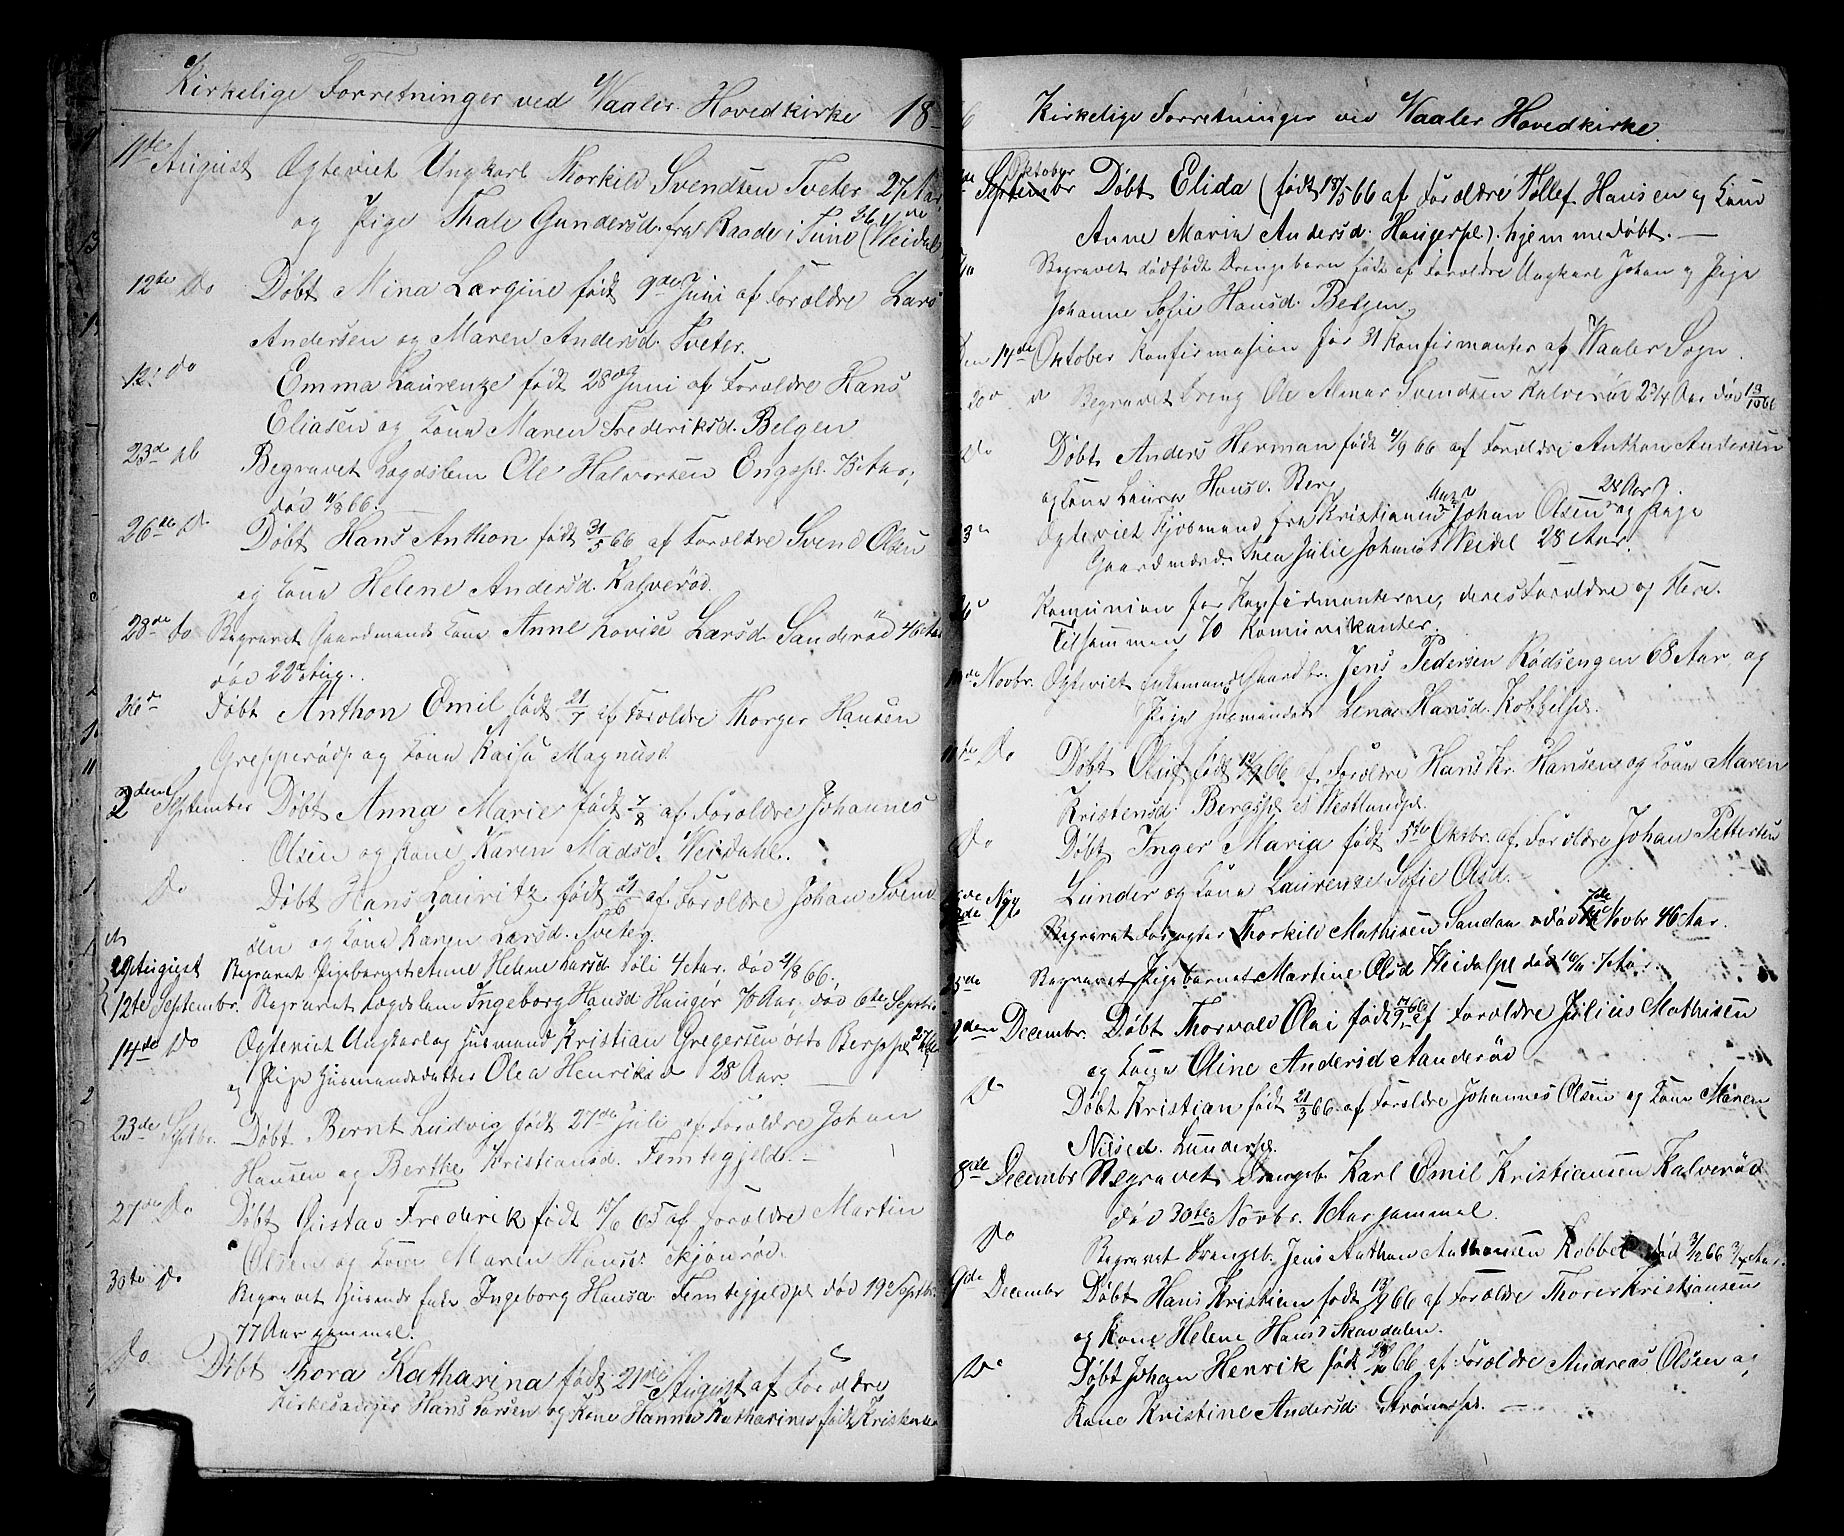 Kirkelige Forretninger ved Waaler Hovedkirke 18
11te August Ægteviet Ungkarl Thorkild Svendsen Tveter 27 Aar
og Pige Thale Gundersd. fra Raade i Tune (Weidal
12te Do Døbt Mina Largine født 9de Juni af Forældre Lars
Andersen og Maren Andersd. Tveter.
12. Do Emma Laurenze født 28de Juni af Forældre Hans
Eliasen og Kone Maren Frederiksd. Belgen
23de Do Begravet Lægdslem Ole Halvorsen Engspl. 75 Aar,
død 11/8 66.
26de Do Døbt Hans Anthon født 31/5 66 af Forældre Svend Olsen
og Kone Helene Andersd. Kalverød.
28de Do Begravet Gaardmands Kone Anne Lovise Larsd. Sanderød 46 Aar
død 22de Aug.
Døbt Anthon Emil født 21/7 af Forældre Thorger Hansen
Grepperødp og Kone Kaisa Magnusd.
2den September Døbt Anna Marie født 7/8 af Forældre Johannes
Olsen og Kone Karen Madsd. Weidahl.
Do Døbt Hans Lauritz født 21/6 af Forældre Johan Svend
sen og Kone Karen Larsd. Tveter.
29 August Begravet Pigebarnet Anne Helene Larsd. 4 Aar. død 21/8 66.
12te Septembr. Begravet Lægdslem Ingeborg Hansd Hauger 70 Aar, død 6te Septbr.
14de Do Ægteviet Ungkarl og Husmand Kristian Gregersen østre Bergspl 27 Aar
og Pige Husmandsdatter Olea Henriksd 28 Aar
23de Septbr. Døbt Bernt Ludvig født 27de Juli af Forældre Johan
Hansen og Berthe Kristiansd. Femtegjeld.
27de Do Døbt Gustav Frederik født 65 af Forældre Martin
Olsen og Kone Maren Hansd. Skjønrød.
30te Do Begravet Ingeborg Hansd Femtegjeldpl død 19de Septbr.
77 Aar gammel.
Do Døbt Thora Katharina født 21de August af Forældre
Kirkesanger Hans Larsen og Kone Hanna Katharine født Kristensen
6 Kirkelige Forretninger ved Waaler Hovedkirke.
Oktober
Septembr Døbt Elida (født 18/5 66 af Forældre Tollef Hansen og Kone
Anne Maria Andersd. Haugerpl). hjemmedøbt.
Do Begravet dødfødt Drengebarn født af Forældre Ungkarl Johan og Pige
Johanne Sofie Hansd. Belgen.
Den 14de Oktober Konfirmasion for 31 Konfirmanter af Waaler Sogn.
Begravet Dreng Ole Almar Svendsen Kalverød 2 3/4 Aar død 13/10 66
Do Døbt Anders Herman født 4/9 66 af Forældre Anthon Andersen
og Kone Laura Hansd. Berg
Ægteviet Kjøbmand fra Kristiania Johan Olsen og Pige 28 Aar
Gaardmænd. Julie Johansd Weidel 28 Aar.
Komunion for Konfirmanterne, deres Forældre og Flere.
Tilsammen 70 Komunikanter.
Novbr. Ægteviet Enkemand Gaardbr. Jens Pedersen Rødsengen 68 Aar og
Pige Husmandsd. Lena Hansd. Kobbelpl.
11te Do Døbt Oluf født 12/9 66 af Forældre Hans Kr. Hansen og Kone Maren
Kristensd. Bergspl et Westlundpl.
Do Døbt Inger Maria født 5te Oktbr. af Forældre Johan Pettersen
Lunder og Kone Laurenze Sofie Olsd.
Begravet Forpagter Thorkild Mathisen Sandaa død 7de Novbr 46 Aar.
25de Begravet Pigebarnet Martine Olsd Weidalpl død 16/11 7 Aar
2den Decembr. Døbt Thorvald Olai født 7/9 66 af Forældre Julius Mathisen
og Kone Oline Andersd Aanderød
Do Døbt Kristian født 21/3 66 af Forældre Johannes Olsen og Kone Maren
Nilsed. Lunderpl.
8de Decembr Begravet Drengeb. Karl Emil Kristiansen Kalverød
død 30te Novbr. 1 Aar gammel.
Do Begravet Drengeb. Jens Anthon Anthonsen Kobbel død 3/12 66 3/4 Aar.
9de Decembr Døbt Hans Kristian født 13/9 66 af Forældre Thorer Kristiansen
og Kone Helene Hansd Skavdalen.
Do Døbt Johan Henrik født 28/10 66 af Forældre Andreas Olsen og
Kone Kristine Andersd Strømspl.